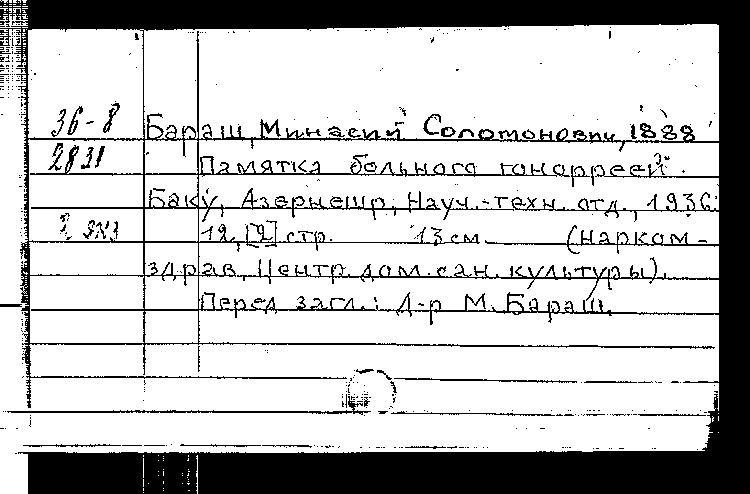 36-8 Бараш, Минасий Соломонович, 1888
2831 Памятка больного гонорреей.
Баку, Азернешр, Науч.-техн. отд., 1936.
2 экз 12, [2] стр. 13 см. (Нарком-
здрав. Центр. дом. сан. культуры).
Перед загл.: Д-р М. Бараш.